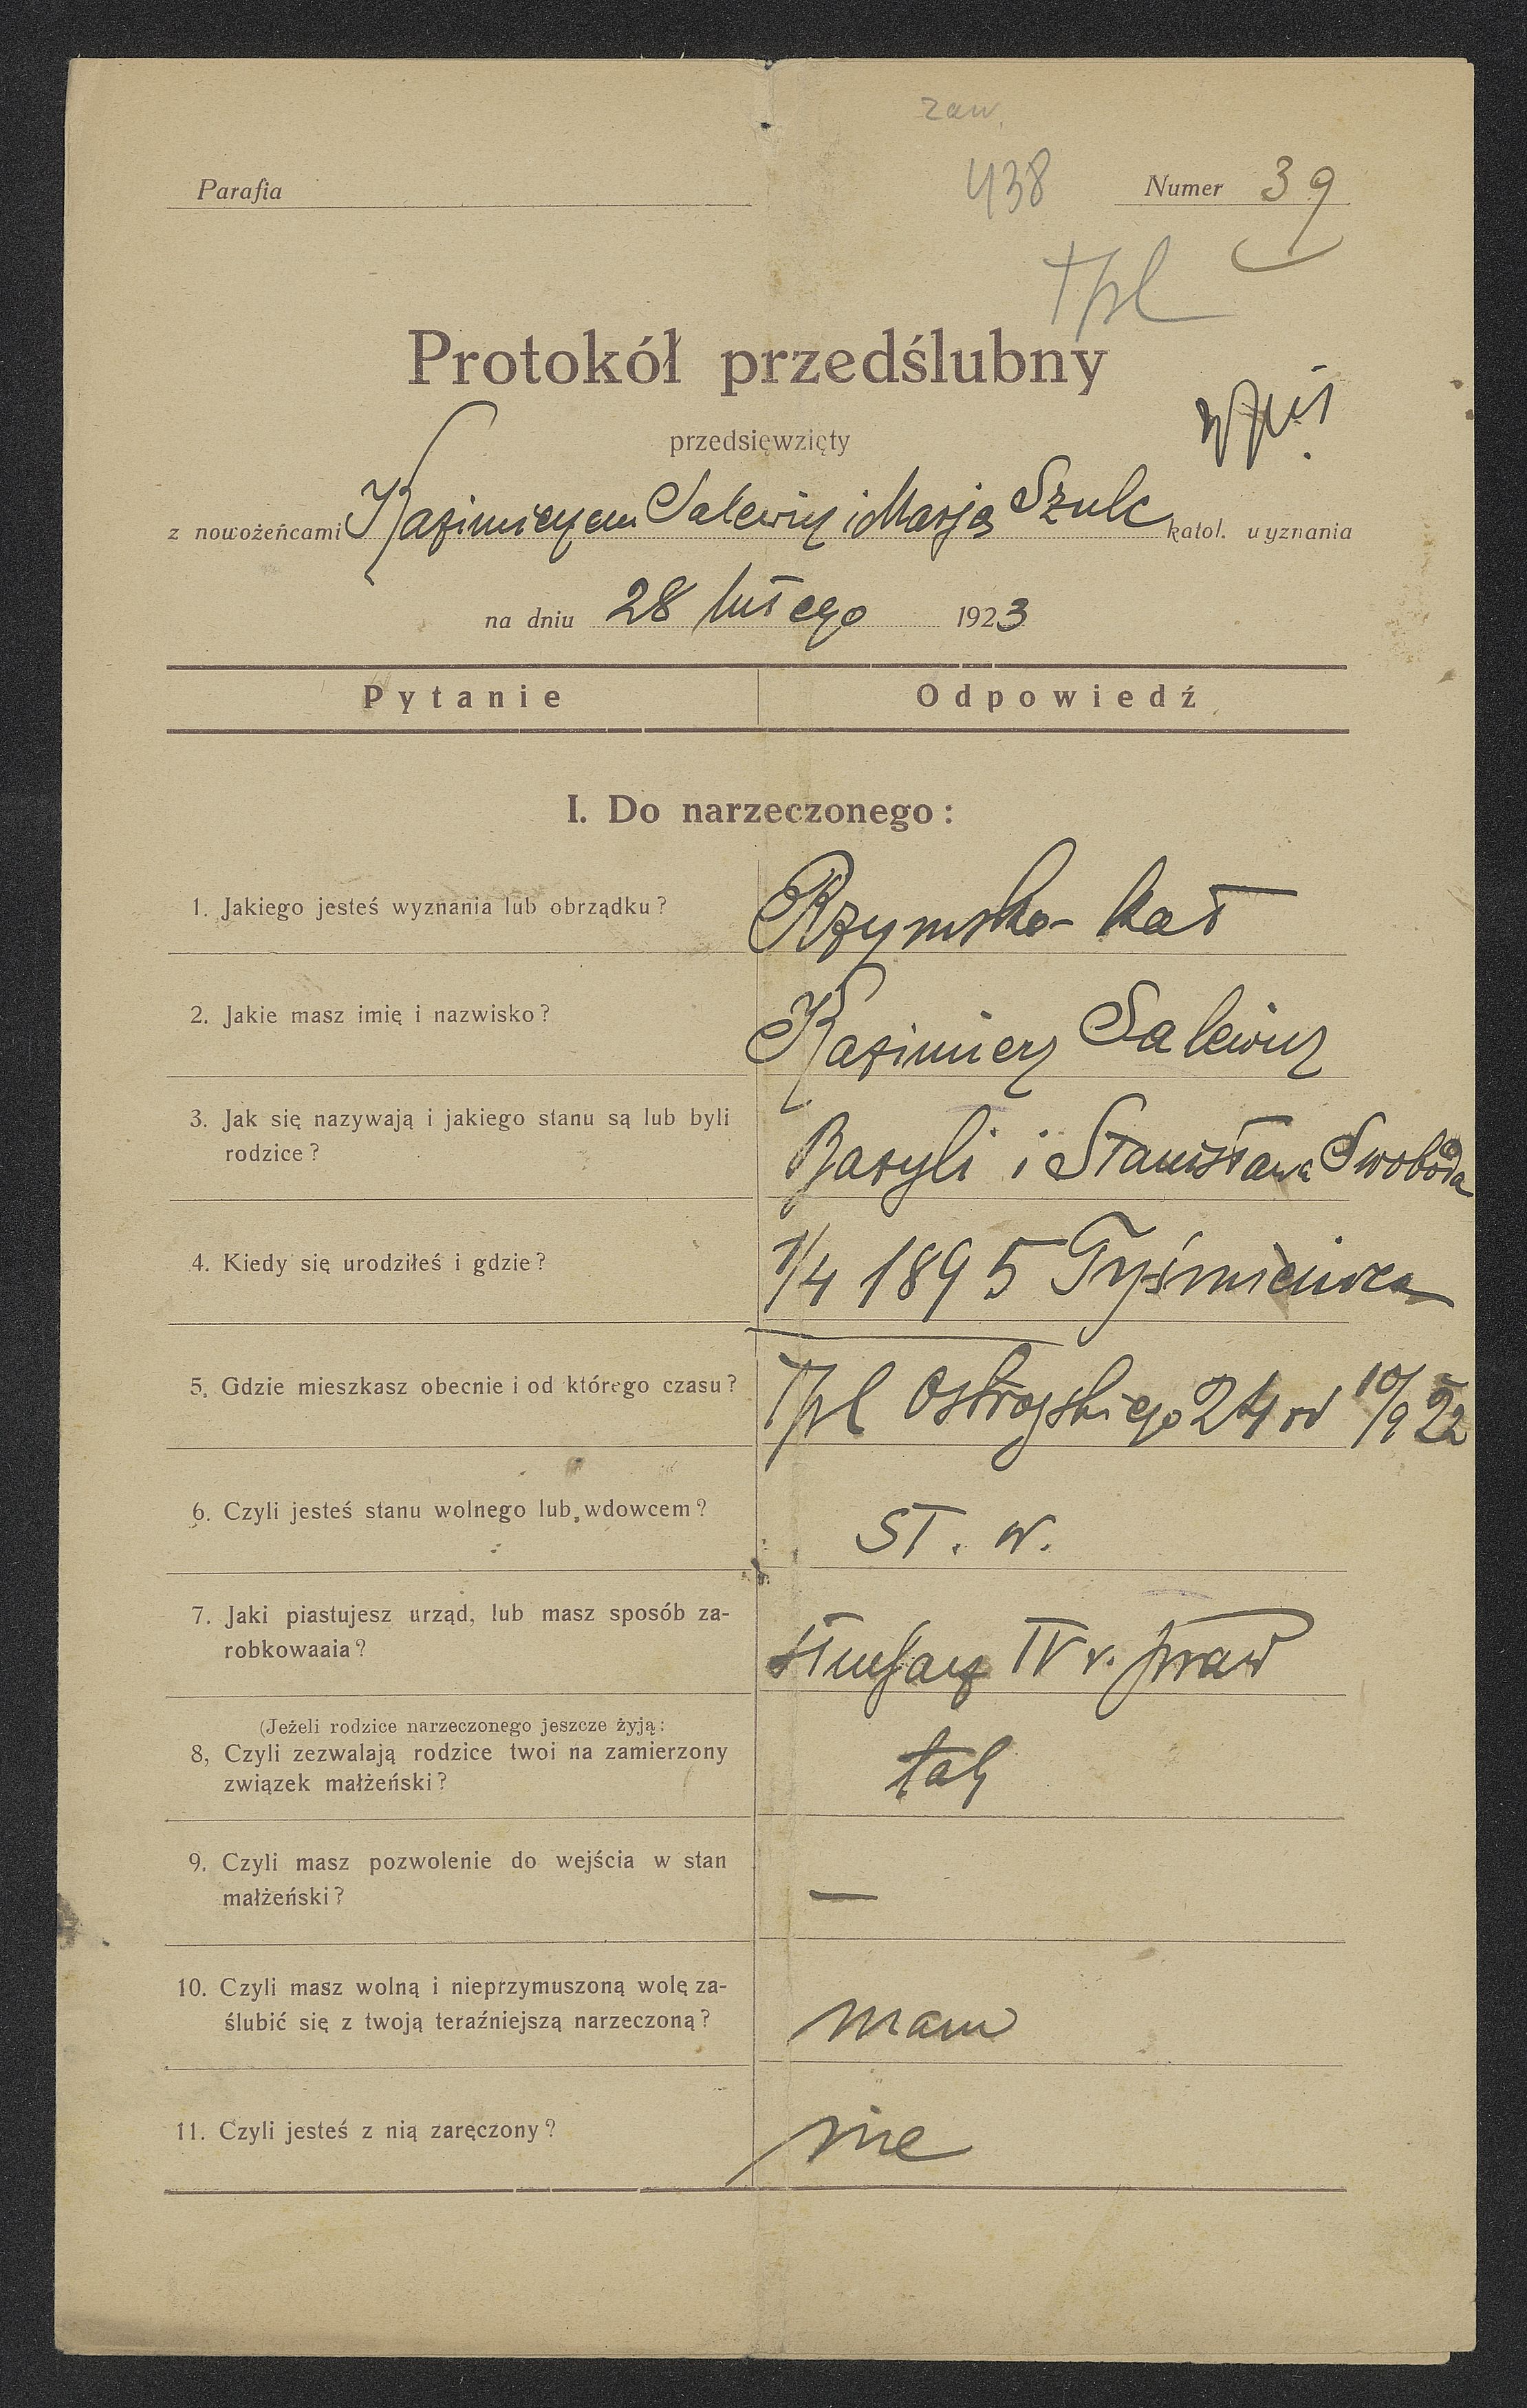 zaw.
438
Parafia
Numer 39
Tpl
Protokół przedślubny
przedsięwzięty
z nowożeńcami Kazimierzem Salewicz i Marją Szulc katol. wyznania
na dniu 28 lutego 1923
Pytanie Odpowiedź
I. Do narzeczonego:
1. Jakiego jesteś wyznania lub obrządku? Rzymsko-kat
2. Jakie masz imię i nazwisko? Kazimierz Salewicz
3. Jak się nazywają i jakiego stanu są lub byli
rodzice? Bazyli i Stanisława Swoboda
4. Kiedy się urodziłeś i gdzie? 1/4 1895 Tyśmienica
5. Gdzie mieszkasz obecnie i od którego czasu? Tpl Ostrogskiego 24 od 10/9 22
6. Czyli jesteś stanu wolnego lub wdowcem? st. w.
7. Jaki piastujesz urząd, lub masz sposób za-
robkowaaia? słuchacz IV r. praw
(Jeżeli rodzice narzeczonego jeszcze żyją:
8, Czyli zezwalają rodzice twoi na zamierzony
związek małżeński? tak
9. Czyli masz pozwolenie do wejścia w stan
małżeński? —
10. Czyli masz wolną i nieprzymuszoną wolę za-
ślubić się z twoją teraźniejszą narzeczoną? mam
11. Czyli jesteś z nią zaręczony? nie